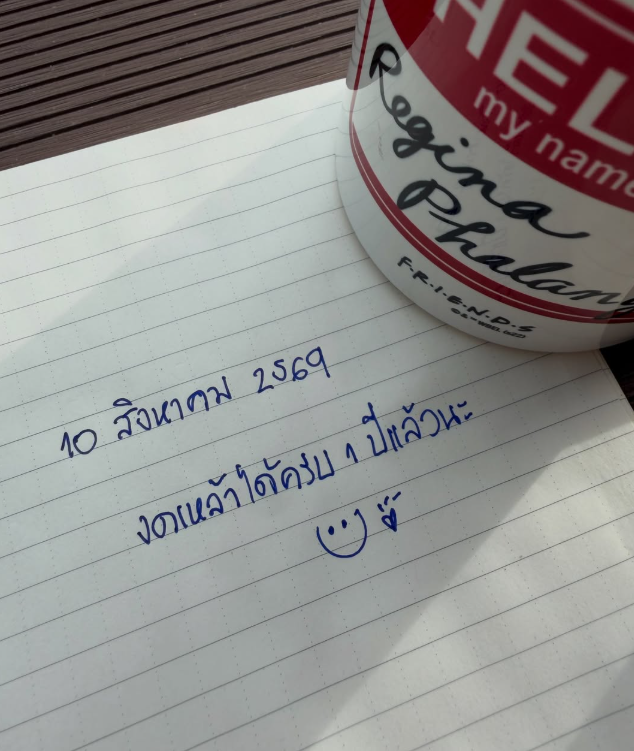 HEL
my name
Regina
Phalang
F·R·I·E·N·D·S
10 สิงหาคม 2569
งดเหล้าได้ครบ 1 ปีแล้วนะ